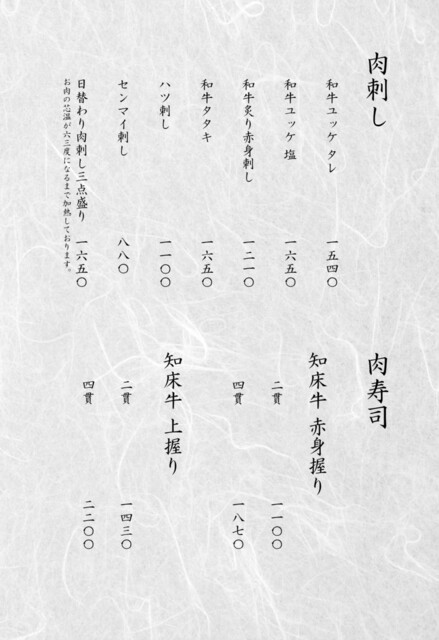 肉刺し
和牛ユッケ タレ 一五四〇
和牛ユッケ 塩 一六五〇
和牛炙り赤身刺し 一二一〇
和牛タタキ 一六五〇
ハツ刺し 一一〇〇
センマイ刺し 八八〇
日替わり肉刺し三点盛り 一六五〇
お肉の芯温が六三度になるまで加熱しております。
肉寿司
知床牛 赤身握り
二貫 一一〇〇
四貫 一八七〇
知床牛 上握り
二貫 一四三〇
四貫 二二〇〇